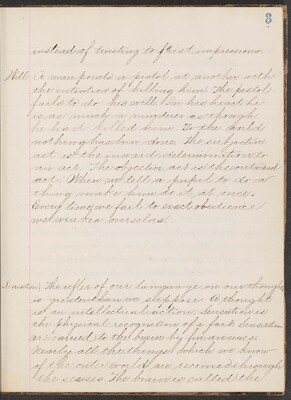 3
instead of trusting to first impressions.
Will. A man points a pistol at another with
the intention of killing him. The pistol
fails to do his will. In his heart he
is as much a murderer as though
he had killed him. To the world
nothing has been done. The subjective
act is the inward determination to
an act. The objective act is the outward
act. When we tell a pupil to do a
thing make him do it at once.
Every time we fail to exact obedience
we weaken ourselves.
Sensation. The reflex of our language on our thoughts
is greater than we suppose. A thought
is an intellectual action. Sensation is
the physical recognition of a fact. Sensations
are carried to the brain by fine nerves.
Nearly all the things which we know
of the outer world are received through
the senses. The brain is called the